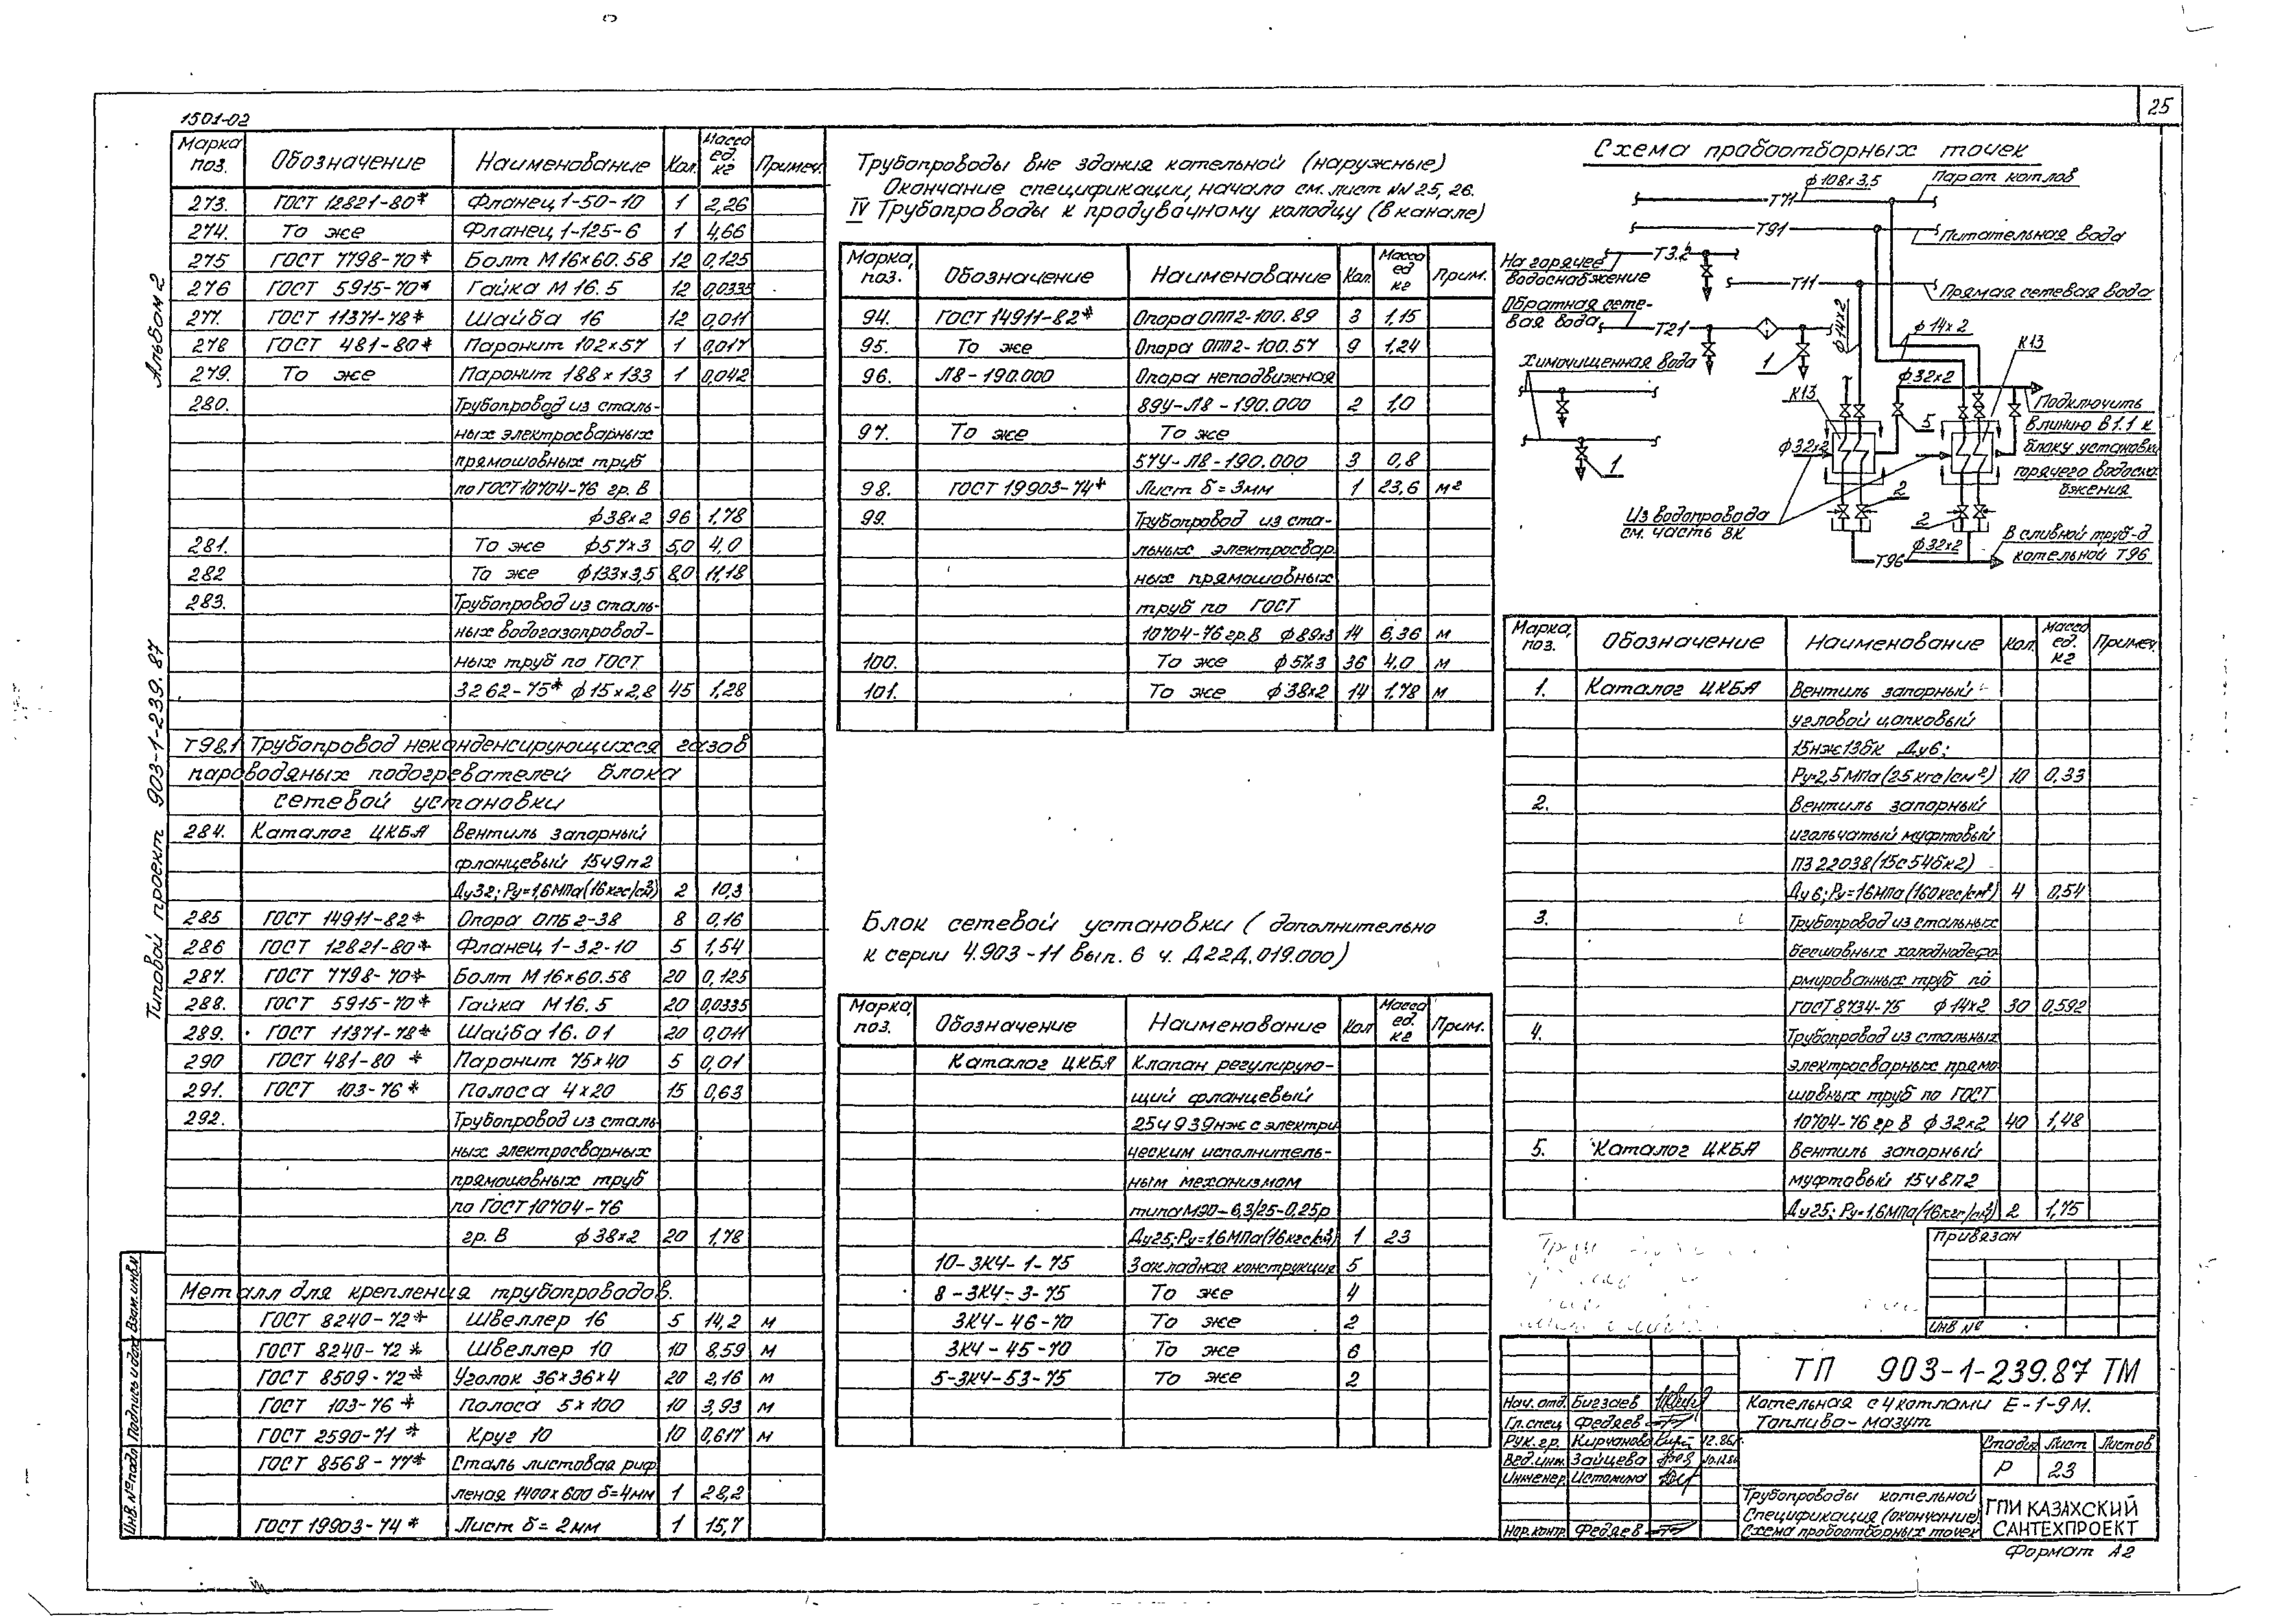 25
1501-02
Альбом 2
Типовой проект 903-1-239.87
Марка поз. Обозначение Наименование Кол. Масса ед. кг Примеч.
273. ГОСТ 12821-80* Фланец 1-50-10 1 2,26
274. То же Фланец 1-125-6 1 4,66
275 ГОСТ 7798-70* Болт М16×60.58 12 0,125
276 ГОСТ 5915-70* Гайка М16.5 12 0,0335
277. ГОСТ 11371-78* Шайба 16 12 0,011
278 ГОСТ 481-80* Паронит 102×57 1 0,017
279. То же Паронит 188×133 1 0,042
280. Трубопровод из сталь-
ных электросварных
прямошовных труб
по ГОСТ 10704-76 гр. В
ф38×2 96 1,78
281. То же ф57×3 5,0 4,0
282 То же ф133×3,5 8,0 11,18
283. Трубопровод из сталь-
ных водогазопровод-
ных труб по ГОСТ
3262-75* ф15×2,8 45 1,28
Т98.1 Трубопровод неконденсирующихся газов
пароводяных подогревателей блока
сетевой установки
284. Каталог ЦКБА Вентиль запорный
фланцевый 15ч9п2
Ду32; Ру=1,6МПа(16кгс/см²) 2 10,3
285 ГОСТ 14911-82* Опора ОПБ2-38 8 0,16
286 ГОСТ 12821-80* Фланец 1-32-10 5 1,54
287. ГОСТ 7798-70* Болт М16×60.58 20 0,125
288. ГОСТ 5915-70* Гайка М16.5 20 0,0335
289. ГОСТ 11371-78* Шайба 16.01 20 0,011
290 ГОСТ 481-80* Паронит 75×40 5 0,01
291. ГОСТ 103-76* Полоса 4×20 15 0,63
292. Трубопровод из сталь
ных электросварных
прямошовных труб
по ГОСТ 10704-76
гр. В ф38×2 20 1,78
Металл для крепления трубопроводов.
ГОСТ 8240-72* Швеллер 16 5 14,2 м
ГОСТ 8240-72* Швеллер 10 10 8,59 м
ГОСТ 8509-72* Уголок 36×36×4 20 2,16 м
ГОСТ 103-76* Полоса 5×100 10 3,93 м
ГОСТ 2590-71* Круг 10 10 0,617 м
ГОСТ 8568-77* Сталь листовая риф
леная 1400×600 δ=4мм 1 28,2
ГОСТ 19903-74* Лист δ=2мм 1 15,7
Трубопроводы вне здания котельной (наружные)
Окончание спецификации, начало см. лист NN 25, 26.
IV Трубопроводы к продувочному колодцу (в канале)
Марка, поз. Обозначение Наименование Кол. Масса ед кг Прим.
94. ГОСТ 14911-82* Опора ОПП2-100.89 3 1,15
95. То же Опора ОПП2-100.57 9 1,24
96. Л8-190.000 Опора неподвижная
89У-Л8-190.000 2 1,0
97. То же То же
57У-Л8-190.000 3 0,8
98. ГОСТ 19903-74* Лист δ=3мм 1 23,6 м²
99. Трубопровод из ста-
льных электросвар
ных прямошовных
труб по ГОСТ
10704-76 гр.В ф89×3 14 6,36 м
100. То же ф57×3 36 4,0 м
101. То же ф38×2 14 1.78 м
Блок сетевой установки (дополнительно
к серии 4.903-11 Вып. 6 ч. Д22Д.019.000)
Марка, поз. Обозначение Наименование Кол Масса ед. кг Прим.
Каталог ЦКБА Клапан регулирую-
щий фланцевый
25ч939нж с электри
ческим исполнитель-
ным механизмом
типа МЭО-6,3/25-0,25р
Ду25; Ру=1,6МПа(16кгс/см²) 1 23
10-ЗК4-1-75 Закладная конструкция 5
8-ЗК4-3-75 То же 4
ЗК4-46-70 То же 2
ЗК4-45-70 То же 6
5-ЗК4-53-75 То же 2
Схема пробоотборных точек
ф108×3,5 Пар от котлов
Т71
Т91 Питательная вода
На горячее водоснабжение Т3.2
Т11 Прямая сетевая вода
Обратная сете-
вая вода Т21
ф14×2 ф14×2
К13
Химочищенная вода 1
ф32×2
К13
5
Подключить
в линию В1.1 к
блоку установки
горячего водосна
бжения
ф32×2
1
2
2
Из водопровода
см. часть ВК
Т96 ф32×2
В сливной труб-д
котельной Т96
Марка, поз. Обозначение Наименование Кол. Масса ед. кг Примеч.
1. Каталог ЦКБА Вентиль запорный
угловой цапковый
15нж13бк Ду6;
Ру=2,5МПа(25кгс/см²) 10 0,33
2. Вентиль запорный
игальчатый муфтовый
ПЗ22038(15с54бк2)
Ду6; Ру=16МПа(160кгс/см²) 4 0,54
3. Трубопровод из стальных
бесшовных холоднодефо
рмированных труб по
ГОСТ 8734-75 ф14×2 30 0,592
4. Трубопровод из стальных
электросварных прямо
шовных труб по ГОСТ
10704-76 гр В ф32×2 40 1,48
5. Каталог ЦКБА Вентиль запорный
муфтовый 15ч8п2
Ду25; Ру=1,6МПа(16кгс/см²) 2 1,75
Привязан
Инв №
ТП 903-1-239.87 ТМ
Котельная с 4 котлами Е-1-9М.
Топливо-мазут
Нач. отд. Бигзаев
Гл. спец Федяев
Рук. гр. Кирчанова 12.86г.
Вед. инж. Зайцева 10.12.86
Инженер Истомина
Нор. контр. Федяев
Стадия Лист Листов
Р 23
Трубопроводы котельной
Спецификация (окончание)
Схема пробоотборных точек
ГПИ КАЗАХСКИЙ
САНТЕХПРОЕКТ
Формат А2
Инв. № подл Подпись и дата Взам. инв. №